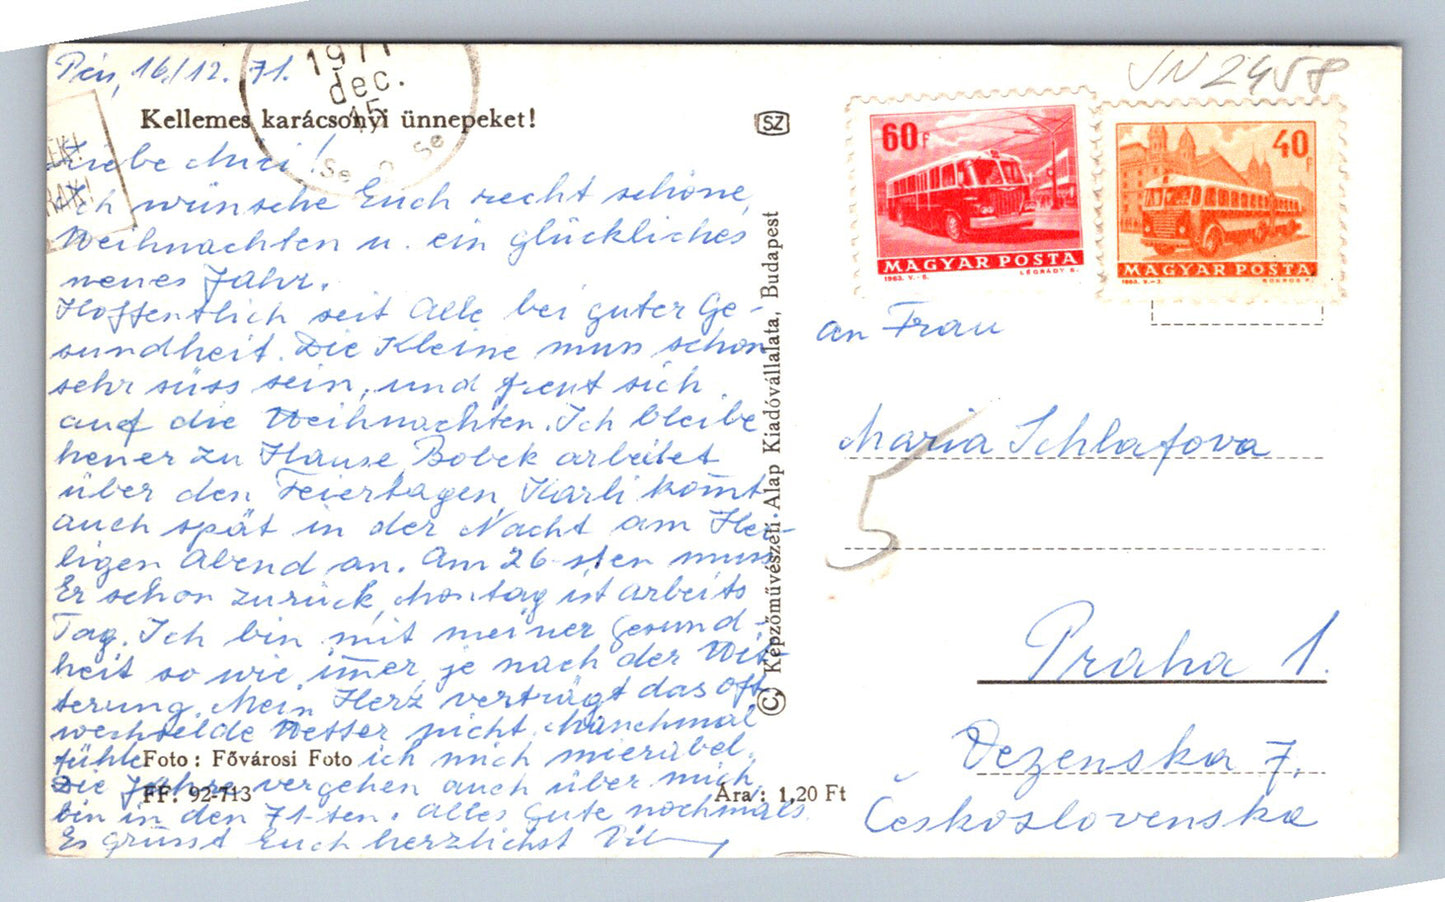 16/12. 71.
1971
dec.
15
Kellemes karácsonyi ünnepeket!
SZ
Liebe Muci!
Ich wünsche Euch recht schöne,
Weihnachten u. ein glückliches
neues Jahr.
Hoffentlich seit Alle bei guter Ge-
sundheit. Die Kleine muss schon
sehr süss sein, und freut sich
auf die Weihnachten. Ich bleibe
heuer zu Hause, Bobek arbeitet
über den Feiertagen Karli kom̄t
auch spät in der Nacht am Hei-
ligen Abend an. Am 26-sten muss
Er schon zurück, Montag ist arbeits
Tag. Ich bin mit meiner gesund-
heit so wie im̄er, je nach der Wit-
terung. Mein Herz verträgt das oft
wechselde Wetter nicht. Manchmal
fühle ich mich mierabel.
Die Jahre vergehen auch über mich,
bin in den 71-ten. Alles Gute nochmals.
Es grüsst Euch herzlichst
Foto: Fővárosi Foto
FF: 92-713
Ára: 1,20 Ft
© Képzőművészeti Alap Kiadóvállalata, Budapest
VN 2458
60 F
MAGYAR POSTA
1963. V.-6.
LÉGRÁDY S.
40 F
MAGYAR POSTA
an Frau
Maria Schlafova
5
Praha 1.
Vezenska 7.
Československa